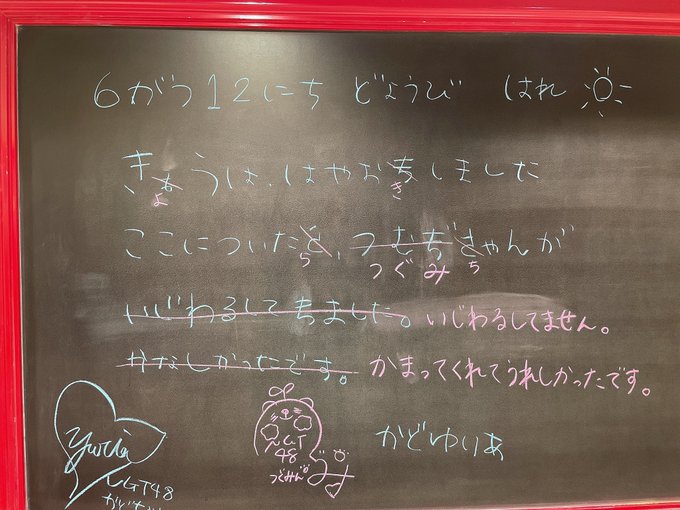 6がつ12にち どようび はれ
きょうは、はやおちしました
よ き
ここについたさ、つむぢさゃんが
ら つぐみ ち
いじわるしてきました。いじわるしてません。
かなしかったです。かまってくれてうれしかったです。
NGT
48
つぐみん
かどゆりあ
yuria
NGT48